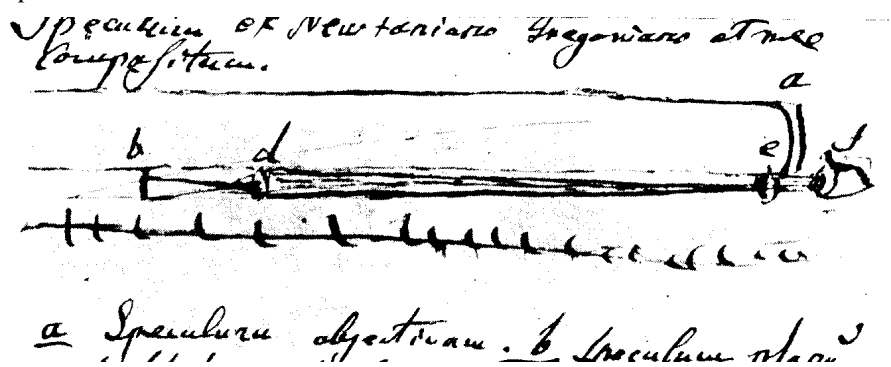 Speculum ex Newtoniano Gregoriano et meo
compositum.
a
b d e f
a Speculum objectivum. b Speculum planū